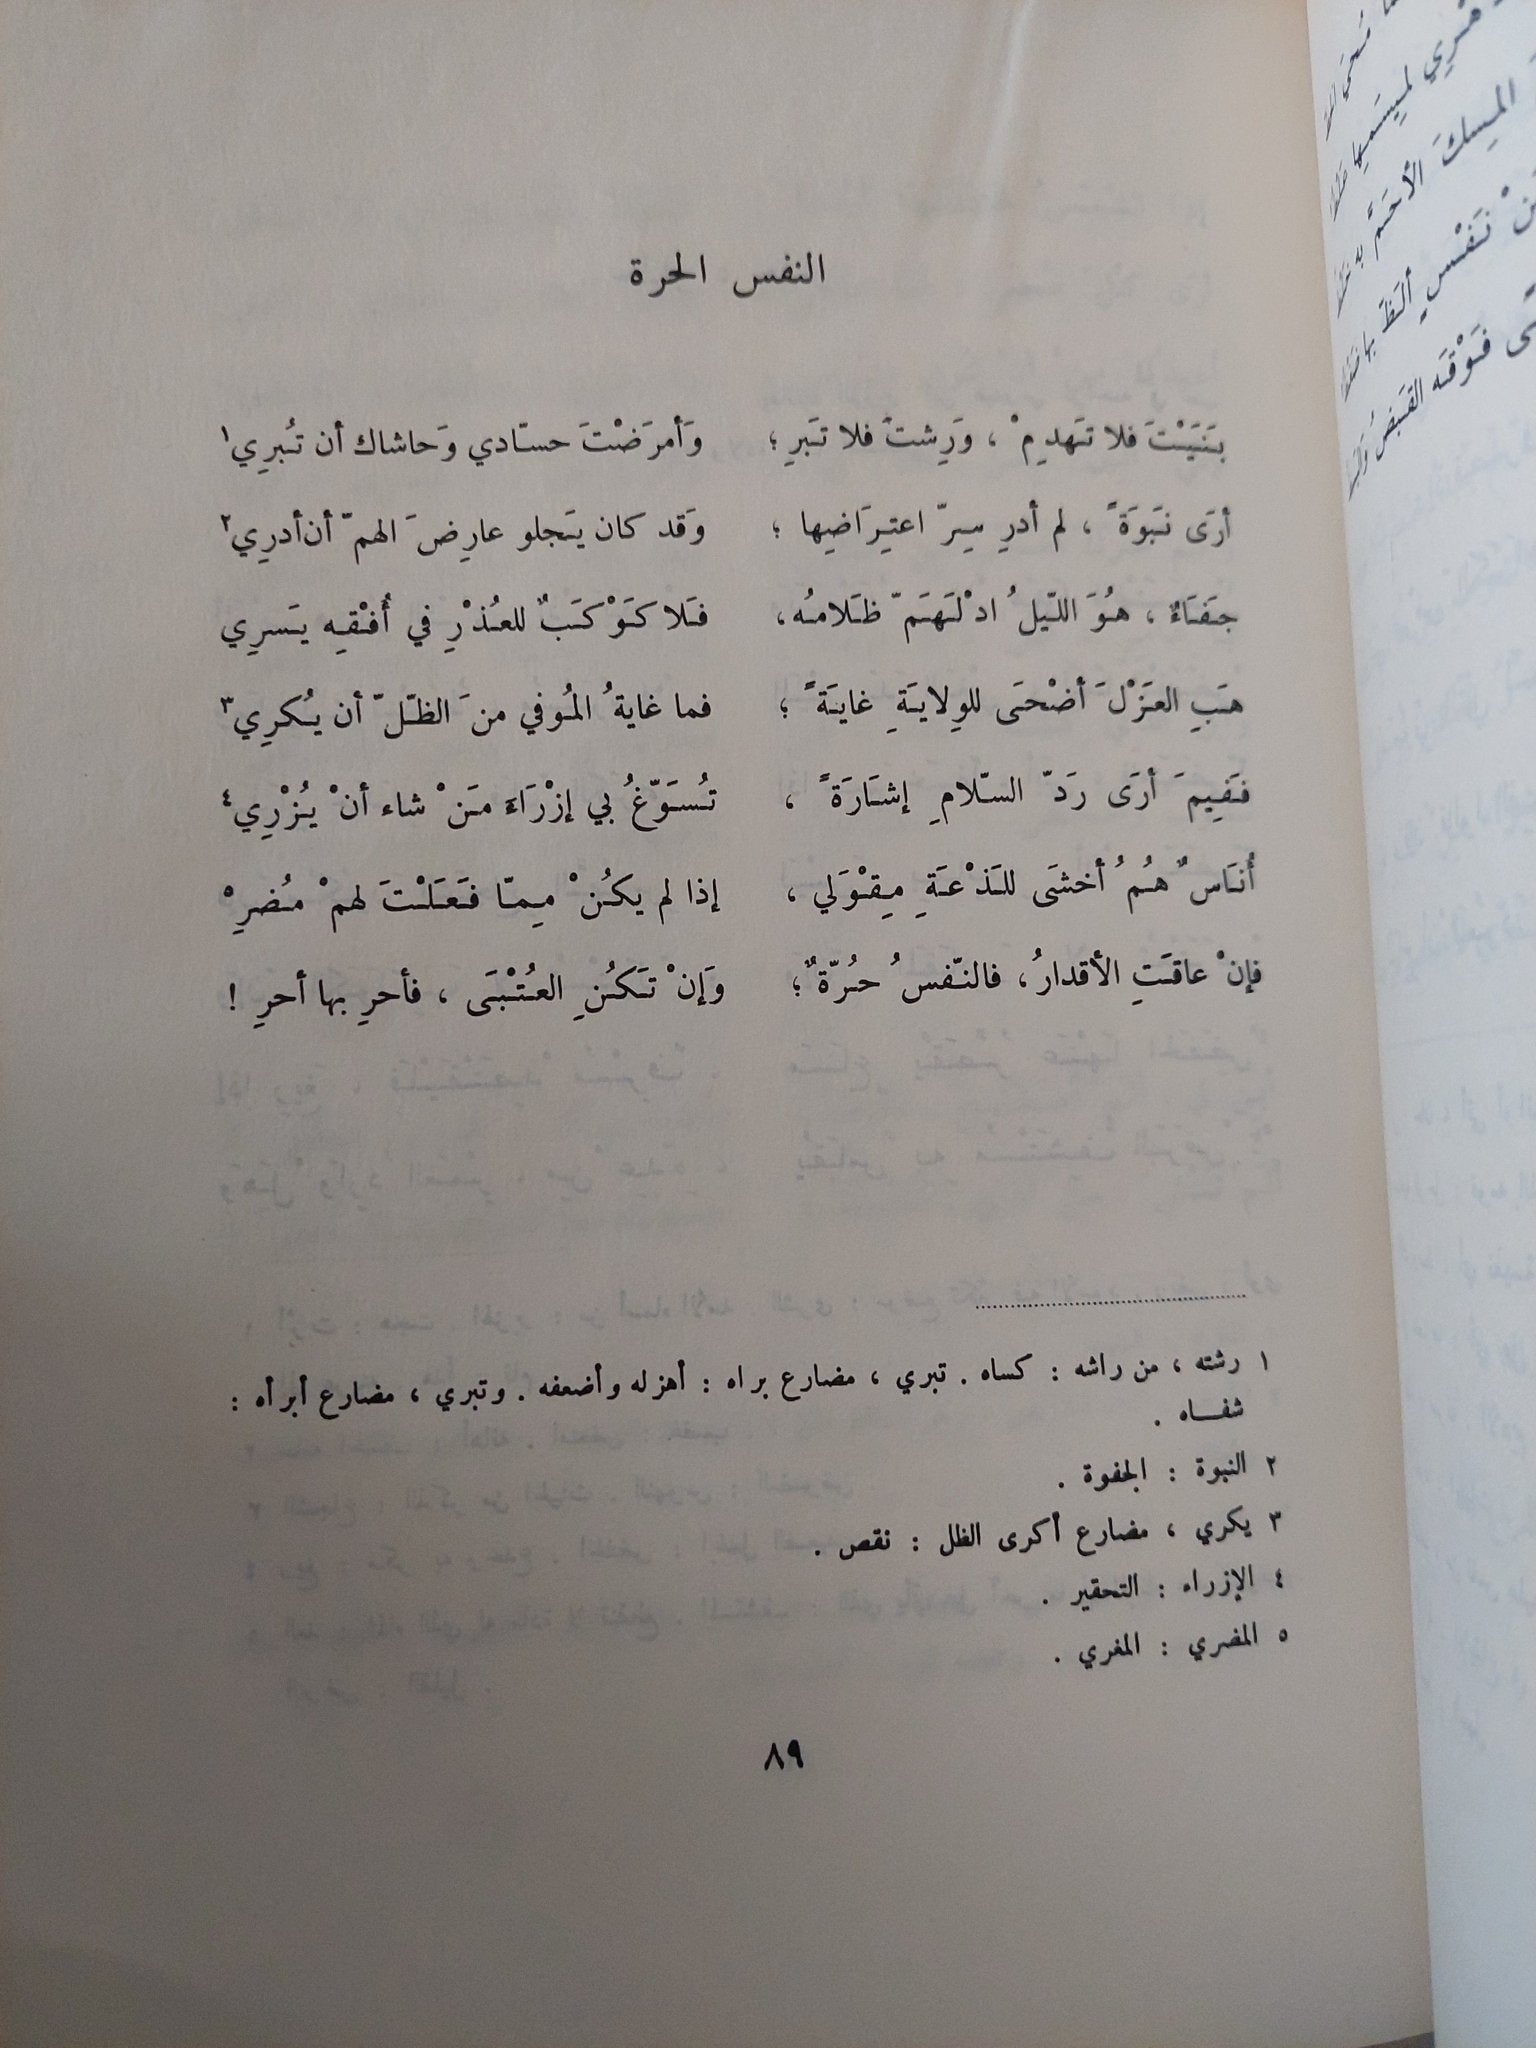 النفس الحرة
بَنَيْتَ فلا تَهدِمْ ، وَرِشتَ فلا تَبرِ ؛ وَأمرَضْتَ حسّادي وَحاشاك أن تُبرِي١
أرَى نَبوَةً ، لم أدرِ سِرّ اعتِرَاضِها ؛ وَقد كان يَجلو عارِضَ الهمّ أن أدرِي٢
جَفَاءٌ ، هُوَ اللّيلُ ادْلَهَمّ ظَلامُه، فَلا كَوْكَبٌ للعُذْرِ في أُفْقِه يَسرِي
هَبِ العَزْلَ أضْحَى للوِلايَةِ غايَةً ؛ فما غايةُ المُوفي منَ الظّلّ أن يُكرِي٣
فَفِيمَ أرَى رَدّ السّلامِ إشارَةً ، تُسَوّغُ بي إزْرَاءَ مَنْ شاء أنْ يُزْرِي٤
أُنَاسٌ هُمُ أخشَى للَذْعَةِ مِقْوَلي ، إذا لم يكُنْ مِمّا فَعَلْتَ لهمْ مُضرِْ
فإنْ عاقَتِ الأقدارُ، فالنّفسُ حُرّةٌ؛ وَإنْ تَكُنِ العُتْبَى ، فأحرِ بها أحرِ !
١ رشته ، من راشه : كساه . تبري ، مضارع براه : أهزله وأضعفه . وتبري ، مضارع أبرأه :
شفــاه .
٢ النبوة : الجفوة .
٣ يكري ، مضارع أكرى الظل : نقص .
٤ الإزراء : التحقير .
٥ المضري : المغري .
٨٩